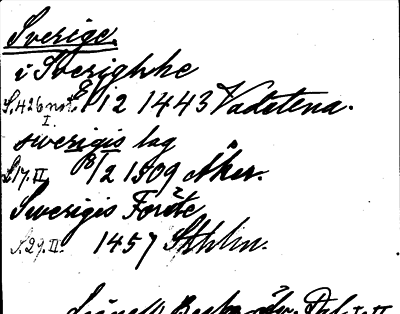 Sverige.
i Sverighke
S. 426 not. 8/12 1443 Vadstena.
I.
swerigis lag
S. 17. II. 18/2 1509 Åker.
Swerigis Förste
S. 29. II. 1457 Sthlm.